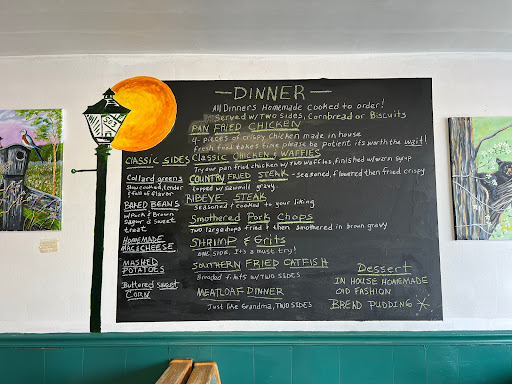 — DINNER —
All Dinners Homemade cooked to order!
Served w/ Two sides, Cornbread or Biscuits
PAN FRIED CHICKEN
4 - pieces of crispy chicken made in house
Fresh food takes time please be patient its worth the wait!
Classic Chicken & Waffles
Try our pan fried chicken w/ two waffles, finished w/ warm syrup
COUNTRY FRIED STEAK - seasoned, flowered then fried crispy
topped w/ sawmill gravy.
RIBEYE STEAK
Seasoned & cooked to your liking
Smothered Pork Chops
Two large chops fried & then smothered in brown gravy
SHRIMP & Grits
ONE SIDE, It's a must try!
SOUTHERN FRIED CATFISH
Breaded filets w/ TWO SIDES
MEATLOAF DINNER
Just like Grandma, TWO SIDES
CLASSIC SIDES
Collard greens
Slow cooked, tender
& full of flavor
BAKED BEANS
w/ Pork & Brown
Sugar a sweet
treat
HOMEMADE
MAC & CHEESE
MASHED
POTATOES
Buttered sweet
CORN
Dessert
IN HOUSE HOMEMADE
OLD FASHION
BREAD PUDDING